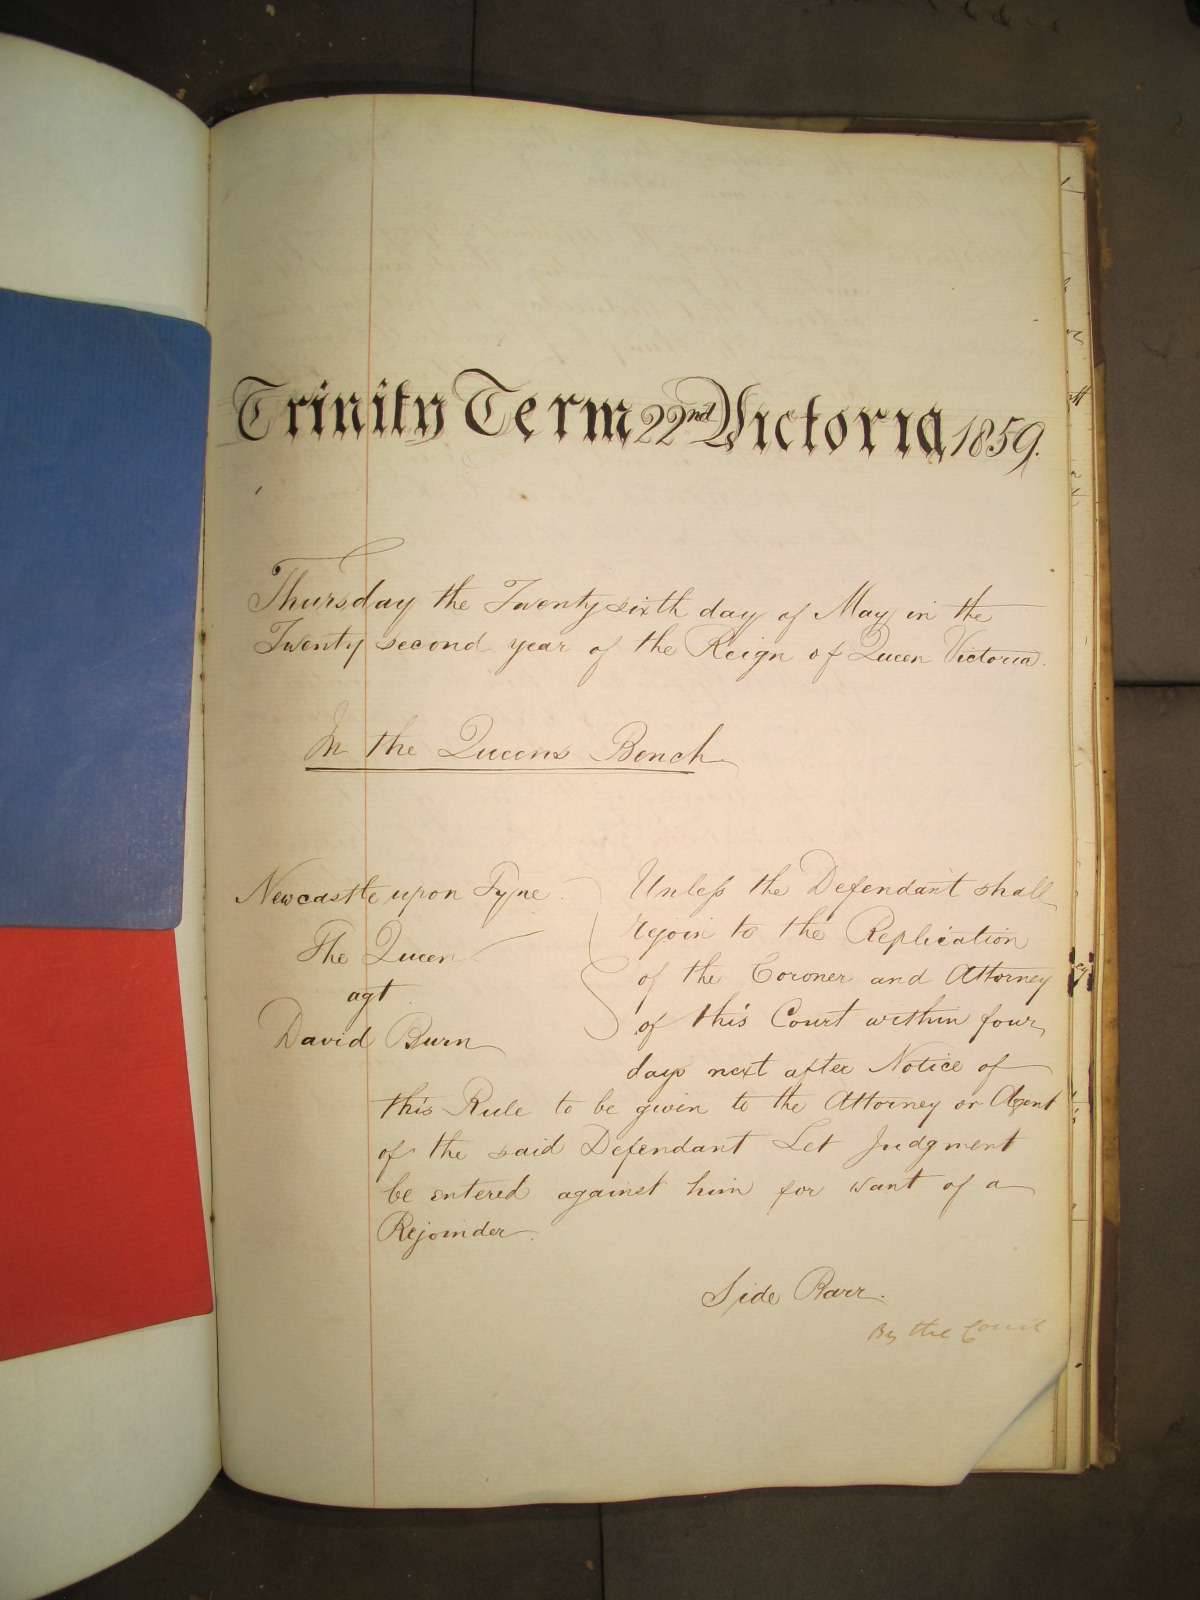 Trinity Term 22nd Victoria 1859.
Thursday the Twenty sixth day of May in the
Twenty second year of the Reign of Queen Victoria.
In the Queens Bench
Newcastle upon Tyne
The Queen
agt
David Burn
Unless the Defendant shall
rejoin to the Replication
of the Coroner and Attorney
of this Court within four
days next after Notice of
this Rule to be given to the Attorney or Agent
of the said Defendant Let Judgment
be entered against him for want of a
Rejoinder.
Side Barr.
By the Court